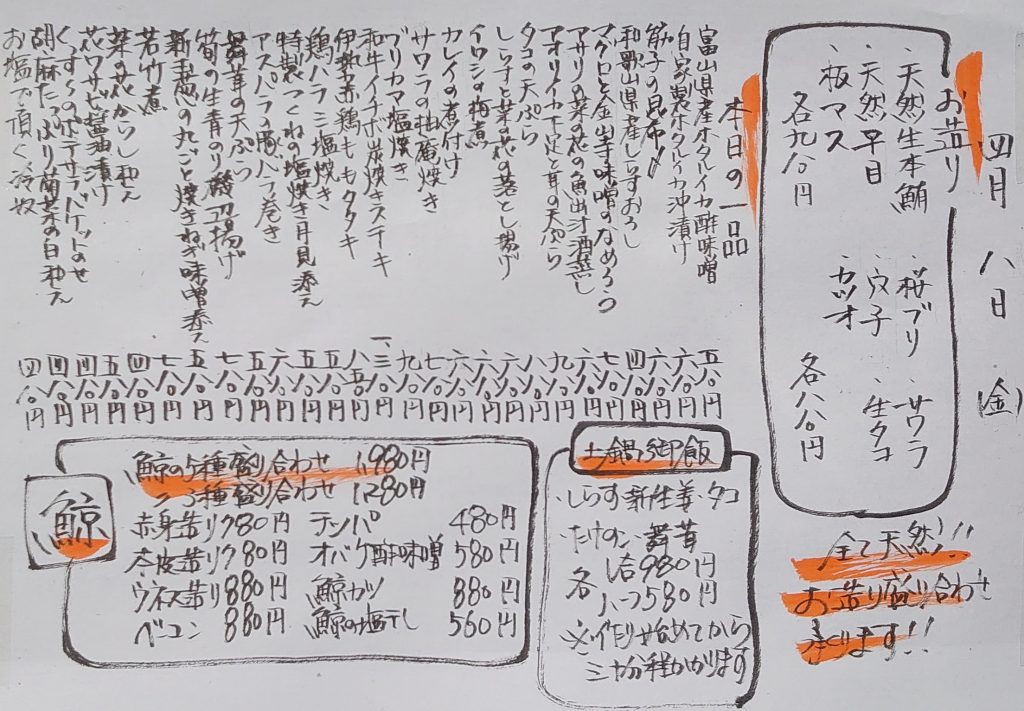 四月八日(金)
お造り
・天然生本鮪 ・桜ブリ ・サワラ
・天然早目 ・穴子 ・生タコ
・板マス ・カツオ
各九八〇円 各八八〇円
全て天然!!
お造り盛り合わせ
承ります!!
本日の一品
富山県産ホタルイカ酢味噌 五八〇円
自家製ホタルイカ沖漬け 六八〇円
筋子の昆布〆 六八〇円
和歌山県産しらすおろし 四八〇円
マグロと金山寺味噌のなめろう 七八〇円
アサリと菜の花の魚出汁酒蒸し 六八〇円
アオリイカ下足と茸の天ぷら 九八〇円
タコの天ぷら 八八〇円
しらすと菜の花の落とし揚げ 六八〇円
イワシの梅煮 六八〇円
カレイの煮付け 六八〇円
サワラの柚庵焼き 七八〇円
ブリカマ塩焼き 九八〇円
和牛イチボ炭焼きステーキ 一、三八〇円
伊勢赤鶏ももタタキ 八五〇円
鶏ハラミ塩焼き 五八〇円
特製つくねの塩焼き月見添え 五八〇円
アスパラの豚バラ巻き 六八〇円
舞茸の天ぷら 五八〇円
筍の生青のり磯辺揚げ 七八〇円
新玉葱の丸ごと焼きねぎ味噌添え 五八〇円
若竹煮 七八〇円
菜の花からし和え 四八〇円
花ワサビ醤油漬け 五八〇円
くずし豆のポテサラバケットのせ 四八〇円
胡麻たっぷり菊菜の白和え 四八〇円
お塩で頂く冷奴 四八〇円
土鍋御飯
・しらす・新生姜・タコ
・たけのこ・舞茸
各 一合980円
ハーフ580円
※作り始めてから
三十分程かかります
鯨
鯨の5種盛り合わせ 1,980円
〃 3種盛り合わせ 1,280円
赤身造り 780円 テッパ 480円
本皮造り 780円 オバケ酢味噌 580円
ウネス造り 880円 鯨カツ 880円
ベーコン 880円 鯨の塩干し 560円